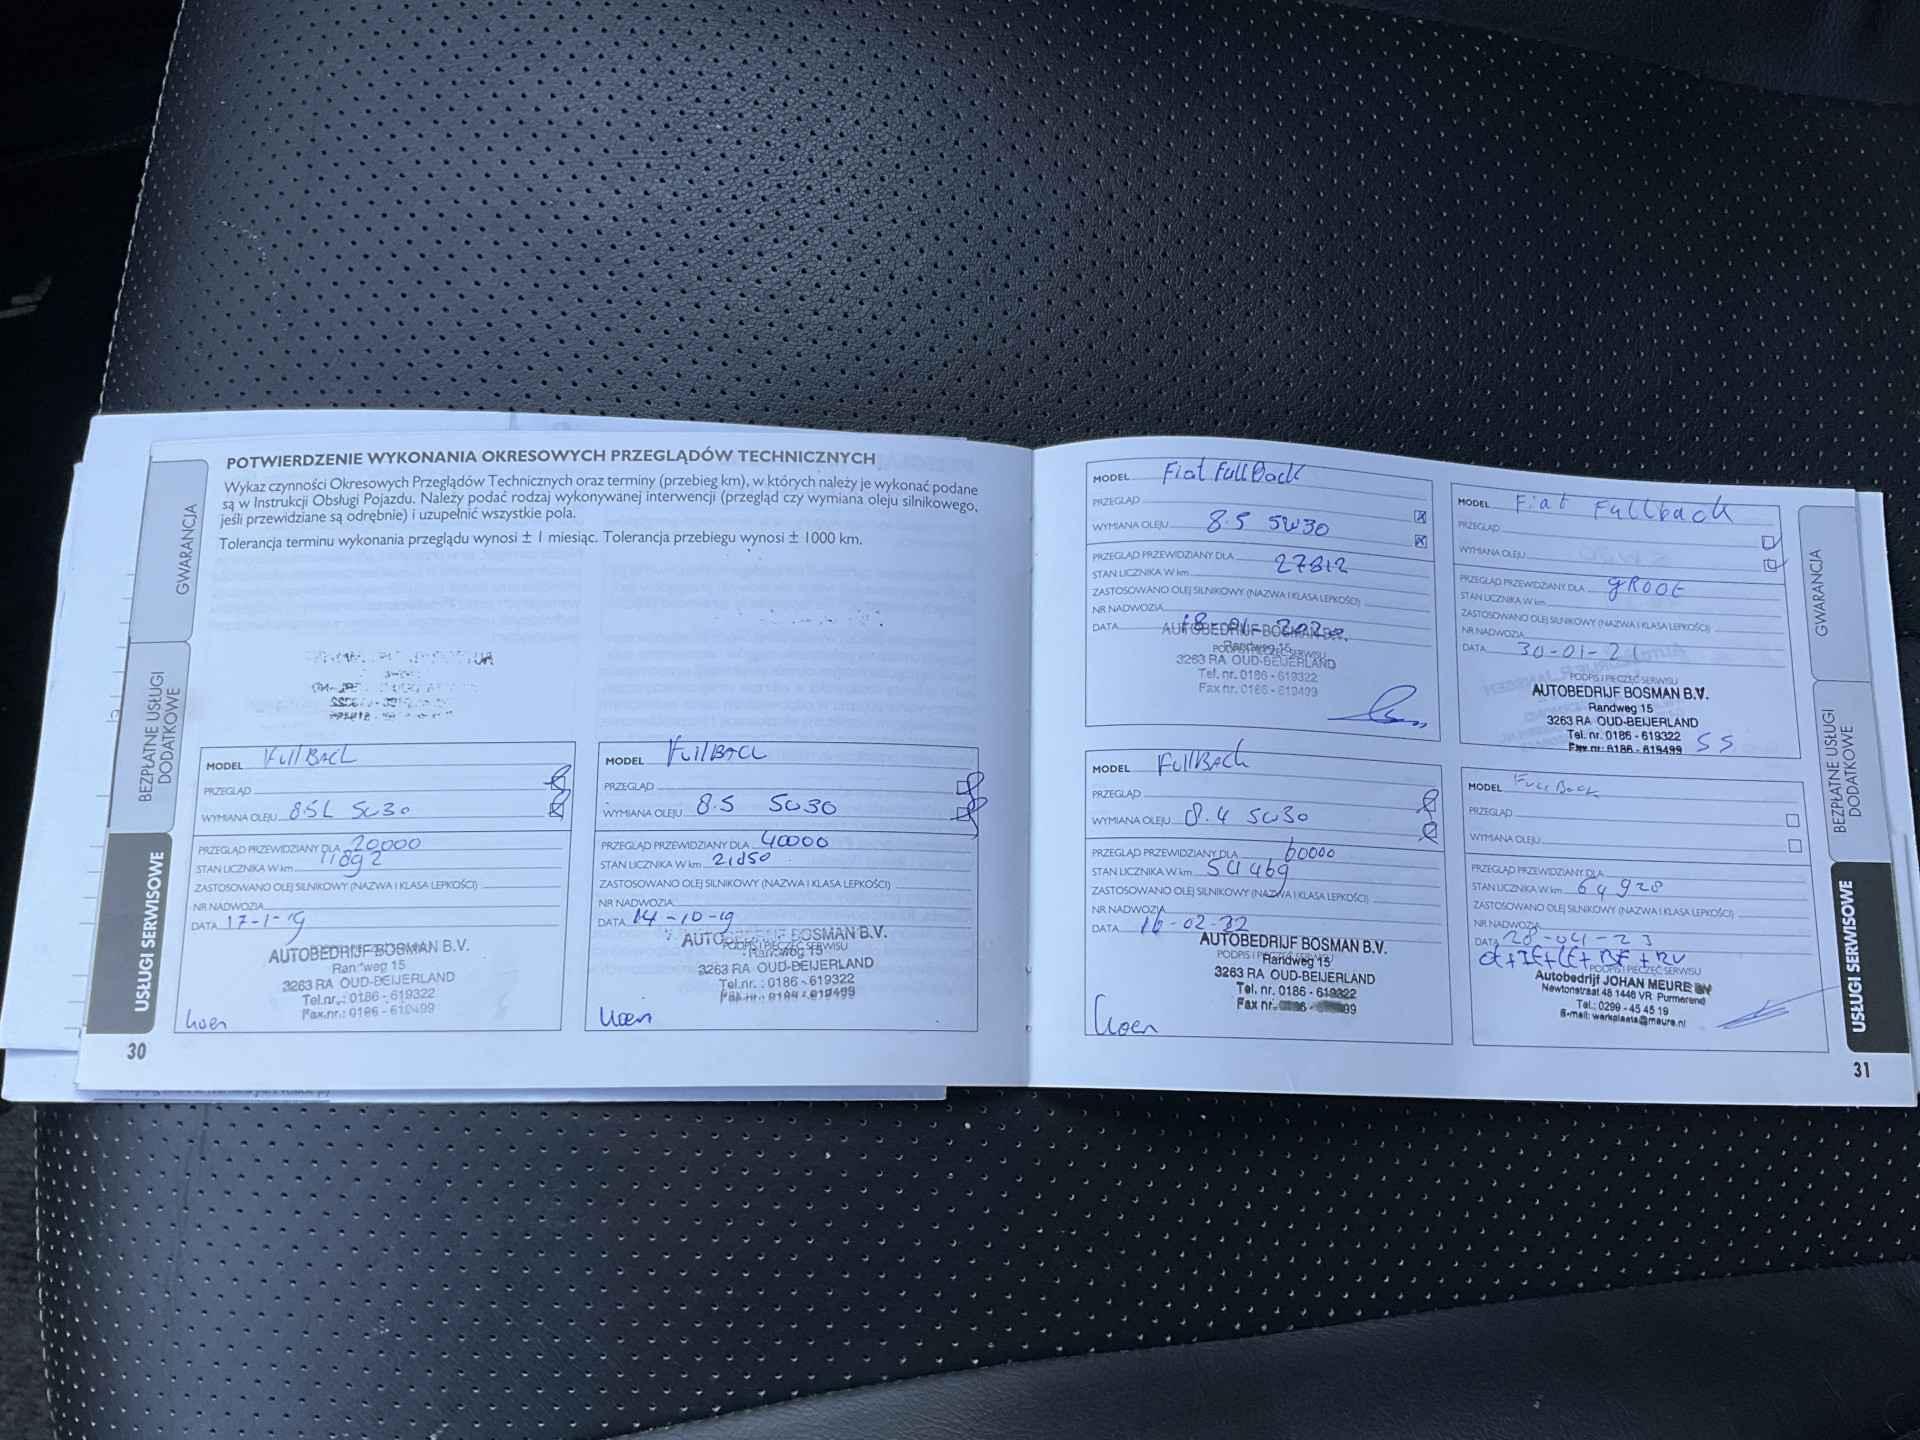 POTWIERDZENIE WYKONANIA OKRESOWYCH PRZEGLĄDÓW TECHNICZNYCH
Wykaz czynności Okresowych Przeglądów Technicznych oraz terminy (przebieg km), w których należy je wykonać podane
są w Instrukcji Obsługi Pojazdu. Należy podać rodzaj wykonywanej interwencji (przegląd czy wymiana oleju silnikowego,
jeśli przewidziane są odrębnie) i uzupełnić wszystkie pola.
Tolerancja terminu wykonania przeglądu wynosi ± 1 miesiąc. Tolerancja przebiegu wynosi ± 1000 km.
GWARANCJA
BEZPŁATNE USŁUGI
DODATKOWE
USŁUGI SERWISOWE
MODEL FullBACk
PRZEGLĄD
WYMIANA OLEJU 8.5L 5W30
PRZEGLĄD PRZEWIDZIANY DLA 20000
STAN LICZNIKA W km 11892
ZASTOSOWANO OLEJ SILNIKOWY (NAZWA I KLASA LEPKOŚCI)
NR NADWOZIA
DATA 17-1-19
AUTOBEDRIJF BOSMAN B.V.
Randweg 15
3263 RA OUD-BEIJERLAND
Tel.nr.: 0186 - 619322
Fax.nr.: 0186 - 619499
Koen
MODEL FullBACk
PRZEGLĄD
WYMIANA OLEJU 8.5 5W30
PRZEGLĄD PRZEWIDZIANY DLA 40000
STAN LICZNIKA W km
ZASTOSOWANO OLEJ SILNIKOWY (NAZWA I KLASA LEPKOŚCI)
NR NADWOZIA
DATA 14-10-19
PODPIS I PIECZĘĆ SERWISU
AUTOBEDRIJF BOSMAN B.V.
Randweg 15
3263 RA OUD-BEIJERLAND
Tel.nr.: 0186 - 619322
Fax.nr.: 0186 - 619499
Koen
30
MODEL Fiat FullBack
PRZEGLĄD
WYMIANA OLEJU 8.5 5W30
PRZEGLĄD PRZEWIDZIANY DLA 27812
STAN LICZNIKA W km
ZASTOSOWANO OLEJ SILNIKOWY (NAZWA I KLASA LEPKOŚCI)
NR NADWOZIA
DATA
PODPIS I PIECZĘĆ SERWISU
AUTOBEDRIJF BOSMAN B.V.
Randweg 15
3263 RA OUD-BEIJERLAND
Tel. nr. 0186 - 619322
Fax nr. 0186 - 619499
MODEL Fiat Fullback
PRZEGLĄD
WYMIANA OLEJU
PRZEGLĄD PRZEWIDZIANY DLA gROOt
STAN LICZNIKA W km
ZASTOSOWANO OLEJ SILNIKOWY (NAZWA I KLASA LEPKOŚCI)
NR NADWOZIA
DATA 30-01-21
PODPIS I PIECZĘĆ SERWISU
AUTOBEDRIJF BOSMAN B.V.
Randweg 15
3263 RA OUD-BEIJERLAND
Tel. nr. 0186 - 619322
Fax nr. 0186 - 619499
SS
MODEL FullBACk
PRZEGLĄD
WYMIANA OLEJU 8.4 5W30
PRZEGLĄD PRZEWIDZIANY DLA 60000
STAN LICZNIKA W km
ZASTOSOWANO OLEJ SILNIKOWY (NAZWA I KLASA LEPKOŚCI)
NR NADWOZIA
DATA
PODPIS I PIECZĘĆ SERWISU
AUTOBEDRIJF BOSMAN B.V.
Randweg 15
3263 RA OUD-BEIJERLAND
Tel. nr. 0186 - 619322
Fax nr.
Koen
MODEL FullBack
PRZEGLĄD
WYMIANA OLEJU
PRZEGLĄD PRZEWIDZIANY DLA
STAN LICZNIKA W km 64928
ZASTOSOWANO OLEJ SILNIKOWY (NAZWA I KLASA LEPKOŚCI)
NR NADWOZIA
DATA 28-04-23
PODPIS I PIECZĘĆ SERWISU
Autobedrijf JOHAN MEURE BV
Newtonstraat 48 1446 VR Purmerend
Tel.: 0299 - 45 45 19
E-mail: werkplaats@meure.nl
31
GWARANCJA
BEZPŁATNE USŁUGI
DODATKOWE
USŁUGI SERWISOWE